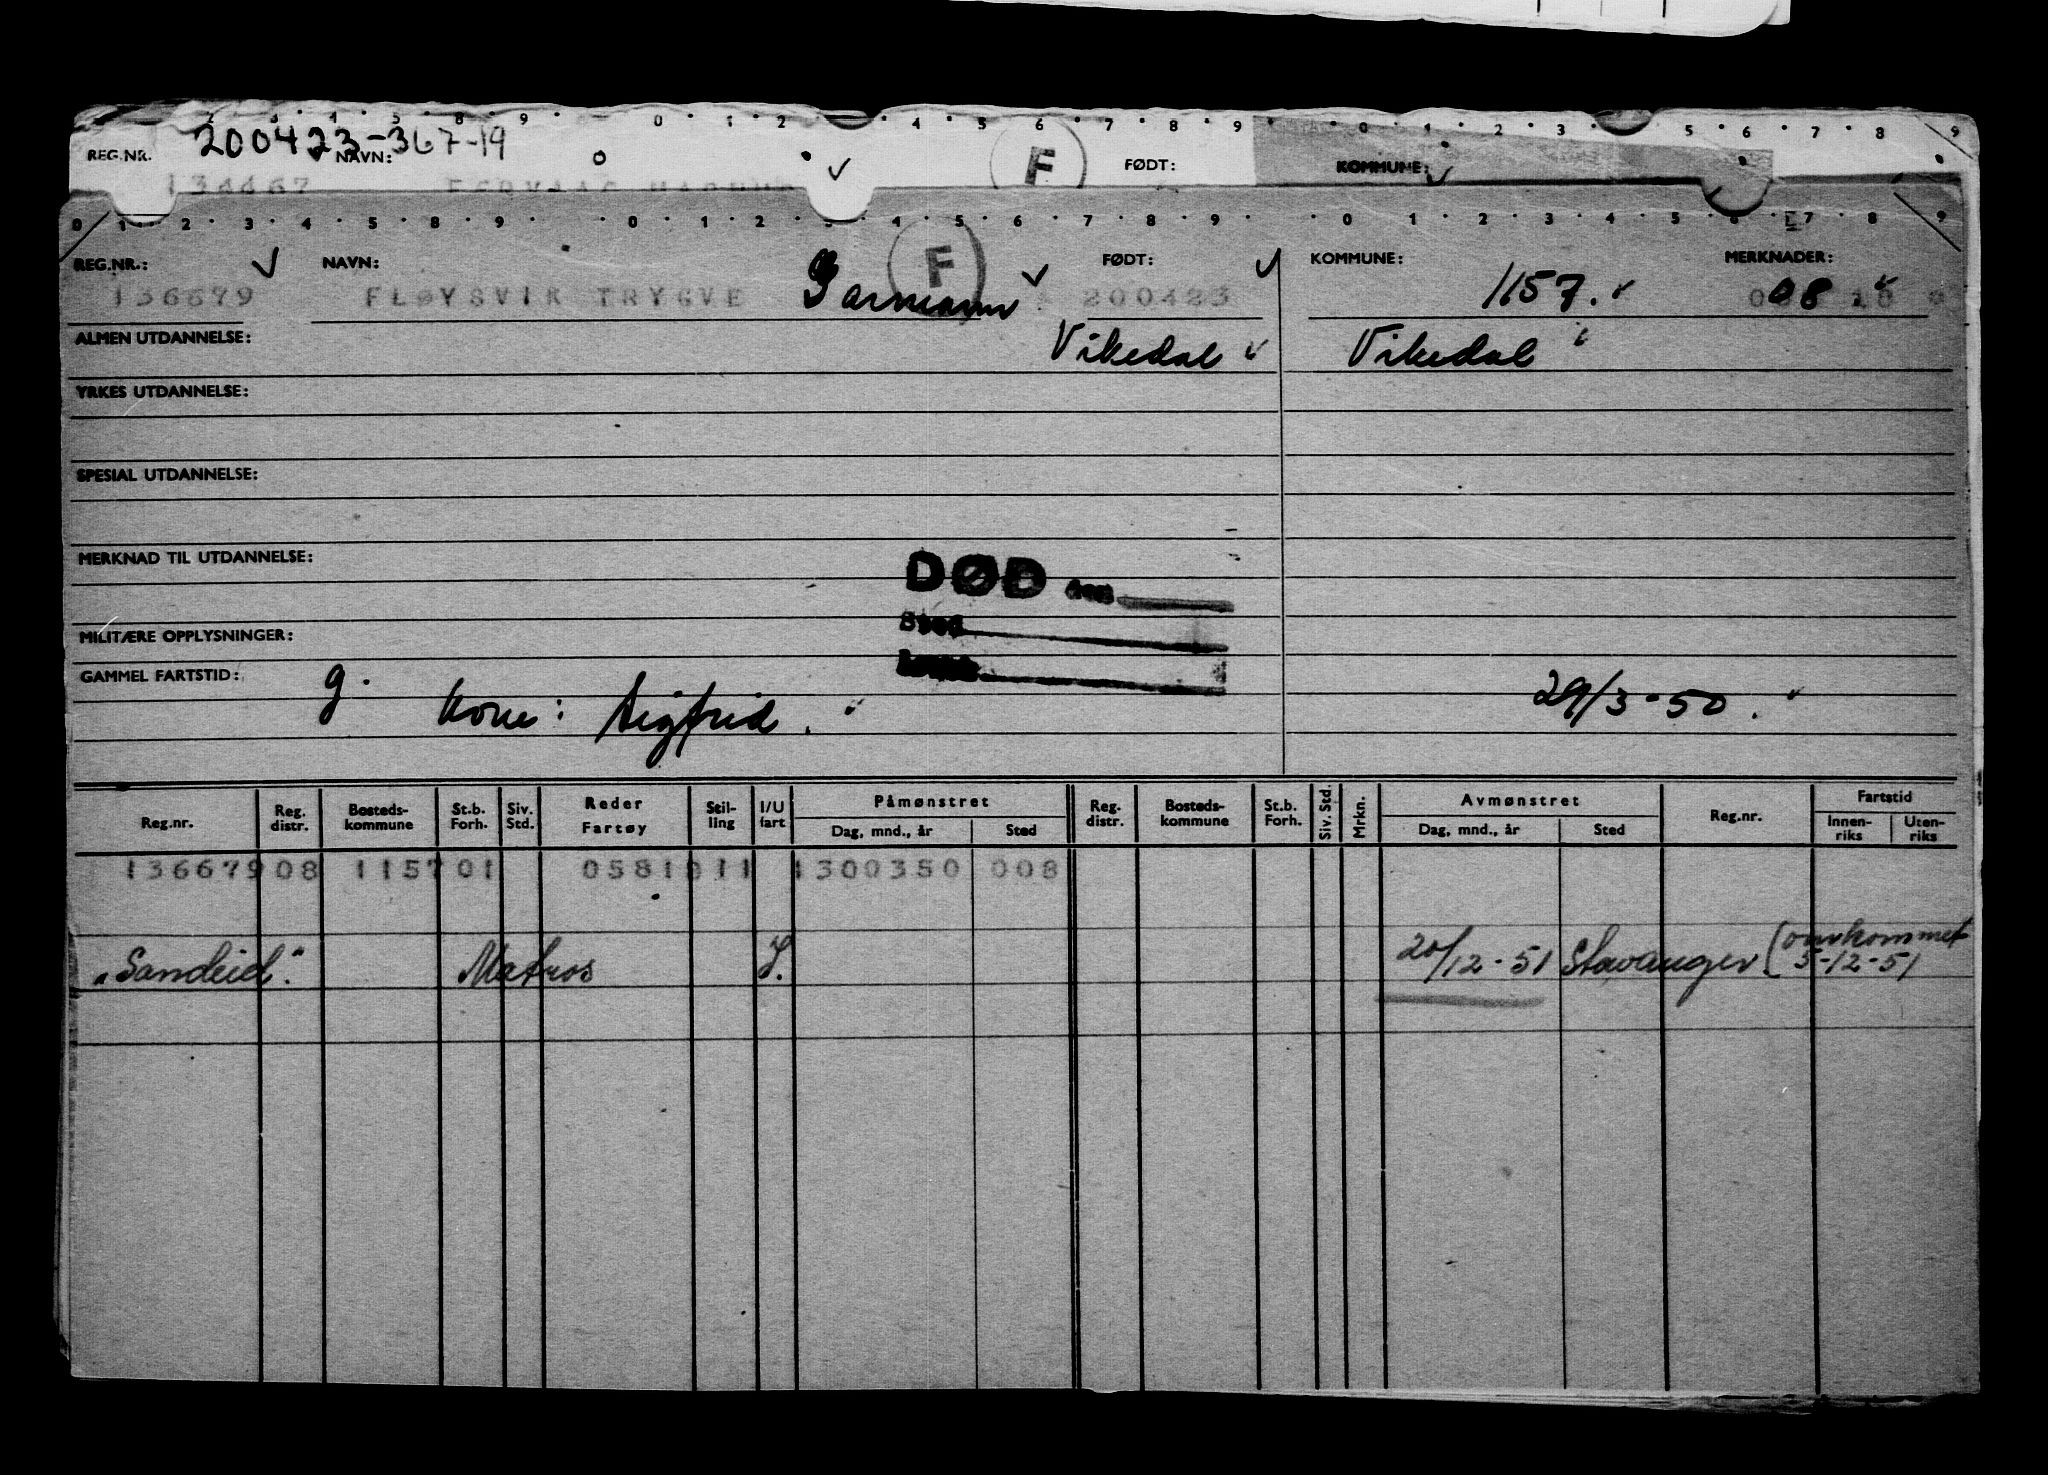 2 3 4 5 8 9 0 1 2 4 5 6 7 8 9 0 1 2 3 5 6 7 8 9
200423-367-19
REG.NR. NAVN: F FØDT: KOMMUNE:
134467
0 1 2 3 4 5 8 9 0 1 2 3 4 5 6 7 8 9 0 1 2 3 4 5 6 7 8 9
REG.NR.: NAVN: F FØDT: KOMMUNE: MERKNADER:
136679 FLØYSVIK TRYGVE Garmann 200423 1157. 08
ALMEN UTDANNELSE: Vikedal Vikedal
YRKES UTDANNELSE:
SPESIAL UTDANNELSE:
MERKNAD TIL UTDANNELSE:
DØD den
Sted
MILITÆRE OPPLYSNINGER:
GAMMEL FARTSTID: g.
Kone: Sigfrid. 29/3-50.
Reg.nr. Reg. distr. Bosteds-kommune St.b. Forh. Siv. Std. Reder Fartøy Stil-ling I/U fart Påmønstret Dag, mnd., år Sted Reg. distr. Bosteds-kommune St.b. Forh. Siv. Std. Mrkn. Avmønstret Dag, mnd., år Sted Reg.nr. Fartstid Innen-riks Uten-riks
136679 08 1157 01 0581 011 1300350 008
"Sandeid". Matros I. 20/12-51 Stavanger (omkommet
5-12-51